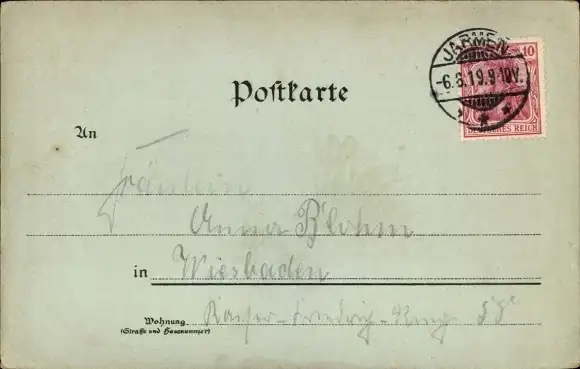 JARMEN
-6.8.19.9-10V.
10
DEUTSCHES REICH
Postkarte
An
Fräulein
Anna Blohm
in Wiesbaden
Wohnung Kaiser-Friedrich-Ring
(Straße und Hausnummer)